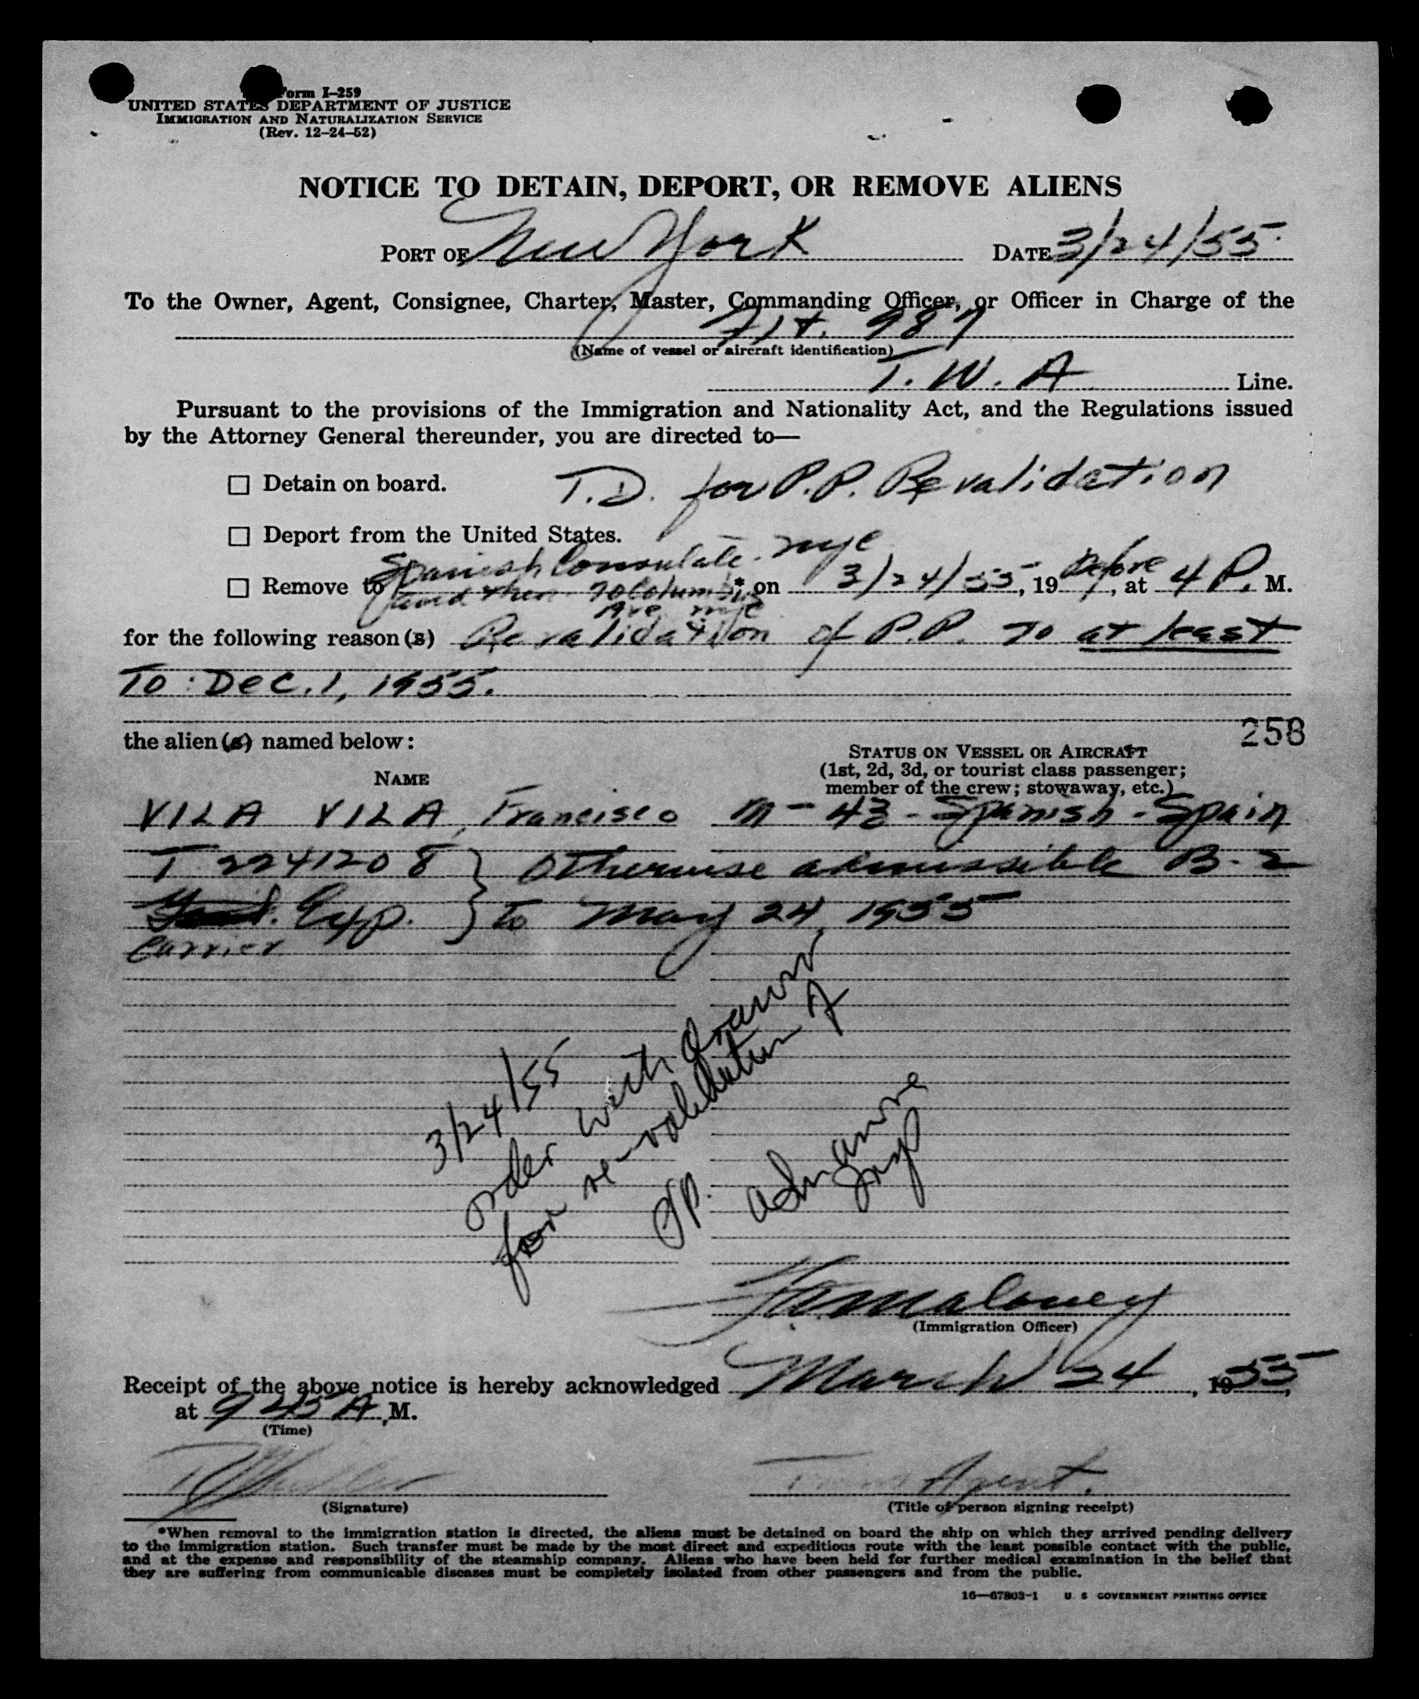 Form I-259
UNITED STATES DEPARTMENT OF JUSTICE
IMMIGRATION AND NATURALIZATION SERVICE
(Rev. 12-24-52)
NOTICE TO DETAIN, DEPORT, OR REMOVE ALIENS
PORT OF New York DATE 3/24/55
To the Owner, Agent, Consignee, Charter, Master, Commanding Officer, or Officer in Charge of the
Flt. 987
(Name of vessel or aircraft identification)
T. W. A Line.
Pursuant to the provisions of the Immigration and Nationality Act, and the Regulations issued
by the Attorney General thereunder, you are directed to—
☐ Detain on board. T.D. for P.P. Revalidation
☐ Deport from the United States.
Spanish Consulate. nyc
☐ Remove to and then 70 Columbus * on 3/24/55, 19 before, at 4 P. M.
Ave. nyc
for the following reason(s) Revalidation of P.P. To at least
To: Dec. 1, 1955.
258
the alien(s) named below:
STATUS ON VESSEL OR AIRCRAFT
NAME (1st, 2d, 3d, or tourist class passenger;
member of the crew; stowaway, etc.)
VILA VILA, Francisco M-43-Spanish-Spain
T 2241208 } Otherwise admissible B-2
Exp. } to May 24, 1955
Carrier
3/24/55
order withdrawn
for re-validation of
PP.
(Immigration Officer)
Receipt of the above notice is hereby acknowledged March 24, 1955,
at 9 25 A. M.
(Time)
Agent.
(Signature) (Title of person signing receipt)
*When removal to the immigration station is directed, the aliens must be detained on board the ship on which they arrived pending delivery
to the immigration station. Such transfer must be made by the most direct and expeditious route with the least possible contact with the public,
and at the expense and responsibility of the steamship company. Aliens who have been held for further medical examination in the belief that
they are suffering from communicable diseases must be completely isolated from other passengers and from the public.
16—67803-1 U. S. GOVERNMENT PRINTING OFFICE